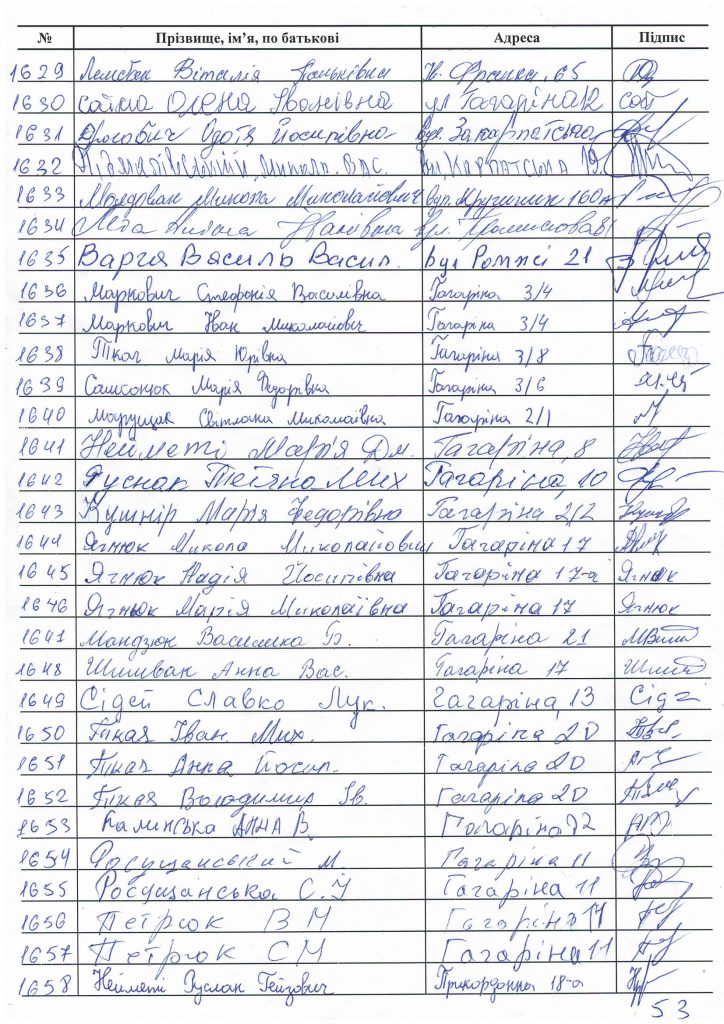 № Прізвище, ім’я, по батькові Адреса Підпис
1629 Віталія Паньківна Франка, 65
1630 Олена Іванівна Гагаріна
1631 Йосипівна вул. Закарпатська
1632 Микола Вас. Карпатська 19
1633 Молдован Микола Миколайович вул. 160а
1634 Іванівна вул.
1635 Варга Василь Васил. вул Ромжі 21
1636 Маркович Стефанія Василівна Гагаріна 3/4
1637 Маркович Іван Миколайович Гагаріна 3/4
1638 Ткач Марія Юрівна Гагаріна 3/8
1639 Самсонюк Марія Федорівна Гагаріна 3/6
1640 Марущак Світлана Миколаївна Гагаріна 2/1
1641 Нейметі Мар'я Дм. Гагаріна, 8
1642 Руснак Тетяна Мих Гагаріна, 10
1643 Кушнір Марія Федорівна Гагаріна 2/2
1644 Ягнюк Микола Миколайович Гагаріна 17
1645 Ягнюк Надія Йосипівна Гагаріна 17-а Ягнюк
1646 Ягнюк Марія Миколаївна Гагаріна 17 Ягнюк
1647 Мандзюк Василика Б. Гагаріна 21
1648 Шишван Анна Вас. Гагаріна 17
1649 Сідей Славко Лук. Гагаріна, 13
1650 Ткач Іван Мих. Гагаріна 20
1651 Ткач Анна Йосип. Гагаріна 20
1652 Ткач Володимир Ів. Гагаріна 20
1653 Калинська Анна В. Гагаріна
1654 Росущанський М. Гагаріна 11
1655 Росущанська С. Гагаріна 11
1656 Петрюк В М Гагаріна 11
1657 Петрюк С М Гагаріна 11
1658 Нейметі Руслан Гейзович Прикордонна 18-а
53